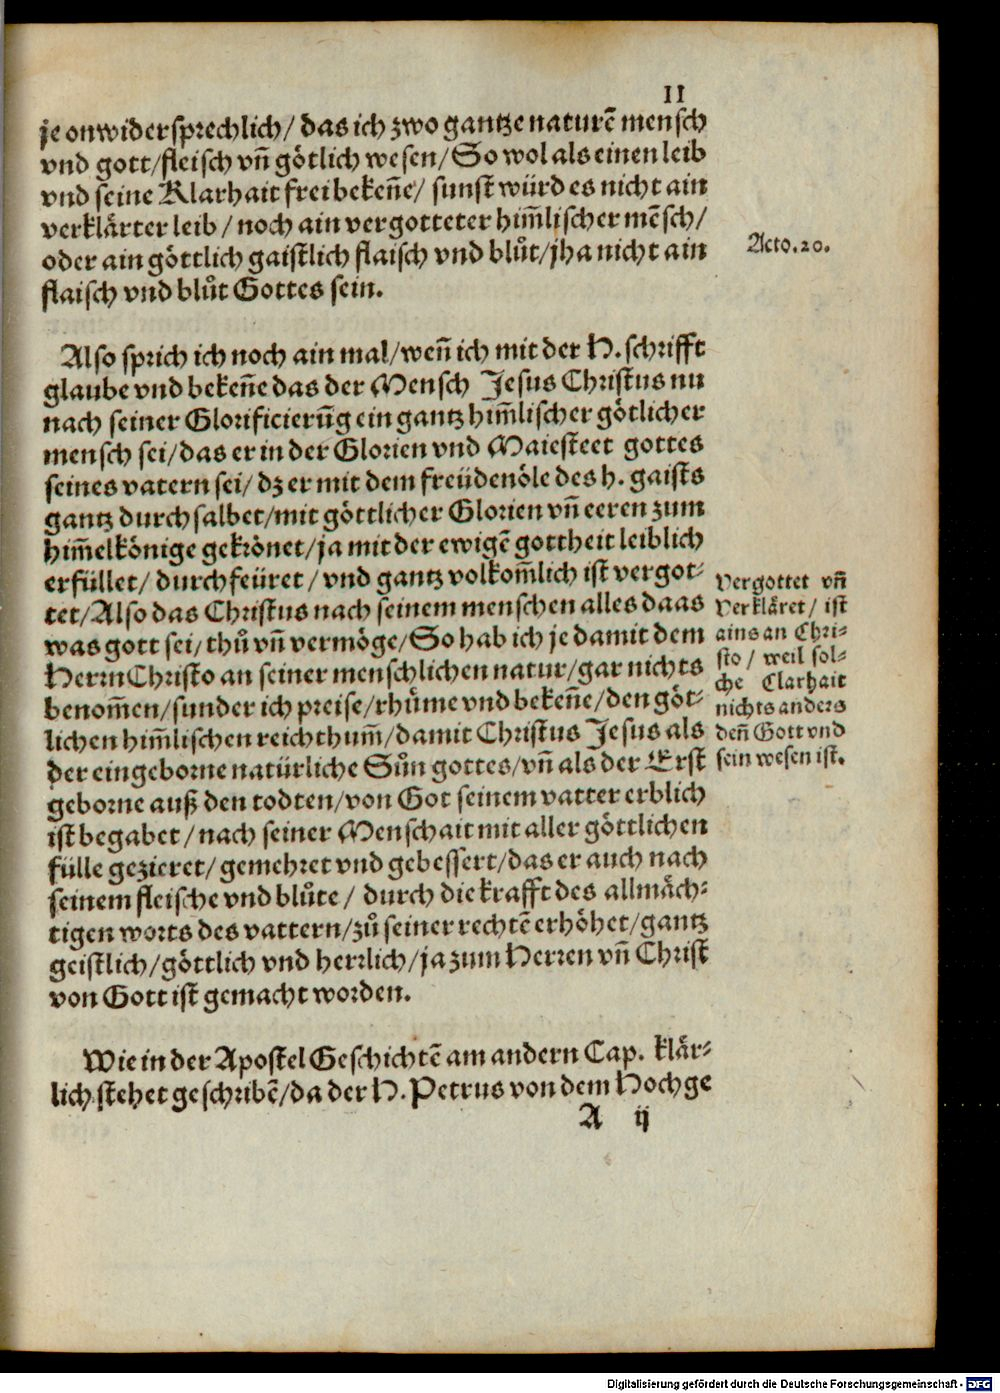 II
je onwidersprechlich/ das ich zwo gantze naturē mensch
vnd gott/fleisch vn̄ götlich wesen/So wol als einen leib
vnd seine Klarhait frei bekeñe/ sunst würd es nicht ain
verklärter leib / noch ain vergotteter him̄lischer mēsch/
oder ain göttlich gaistlich flaisch vnd blůt/jha nicht ain
flaisch vnd blůt Gottes sein.
Acto.20.
Also sprich ich noch ain mal/weñ ich mit der H. schrifft
glaube vnd bekeñe das der Mensch Jesus Christus nu
nach seiner Glorificierūg ein gantz him̄lischer götlicher
mensch sei/das er in der Glorien vnd Maiesteet gottes
seines vatern sei/ dz er mit dem freüdenöle des h. gaists
gantz durchsalbet/mit göttlicher Glorien vn̄ eeren zum
him̄elkönige gekrönet/ja mit der ewigē gottheit leiblich
erfüllet/ durchfeüret / vnd gantz volkom̄lich ist vergot⸗
tet/Also das Christus nach seinem menschen alles daas
was gott sei/thů vn̄ vermöge/So hab ich je damit dem
Herrn Christo an seiner menschlichen natur/gar nichts
benom̄en/sunder ich preise/rhůme vnd bekeñe/den göt⸗
lichen him̄lischen reichthum̄/damit Christus Jesus als
der eingeborne natürliche Sůn gottes/vn̄ als der Erst
geborne auß den todten/von Got seinem vatter erblich
ist begabet/nach seiner Menschait mit aller göttlichen
fülle gezieret/ gemehret vnd gebessert/das er auch nach
seinem fleische vnd blůte/ durch die krafft des allmäch⸗
tigen worts des vattern/zů seiner rechtē erhöhet/gantz
geistlich/göttlich vnd herrlich/ja zum Herren vn̄ Christ
von Gott ist gemacht worden.
Vergottet vn̄
Verkläret/ ist
ains an Chri⸗
sto / weil sol⸗
che Clarhait
nichts anders
deñ Gott vnd
sein wesen ist.
Wie in der Apostel Geschichtē am andern Cap. klär⸗
lich stehet geschribē/da der H. Petrus von dem Hochge
A ij
Digitalisierung gefördert durch die Deutsche Forschungsgemeinschaft - DFG